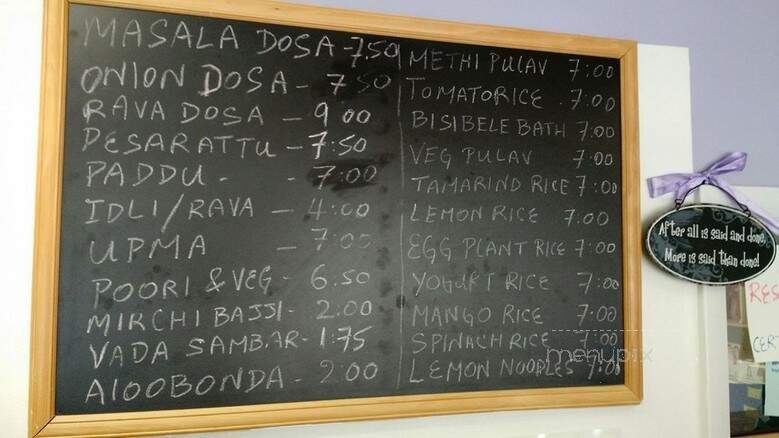 MASALA DOSA - 7.50
ONION DOSA - 7.50
RAVA DOSA - 9 00
PESARATTU - 7:50
PADDU - - 7:00
IDLI/RAVA - 4:00
UPMA - 7:00
POORI & VEG - 6.50
MIRCHI BAJJI - 2.00
VADA SAMBAR - 1:75
AlOOBONDA - 2 00
METHI PULAV 7:00
TOMATORICE . 7:00
BISIBELE BATH 7:00
VEG PULAV 7:00
TAMARIND RICE 7:00
LEMON RICE 7.00
EGG PLANT RICE 7:00
YOGURT RICE 7:00
MANGO RICE 7:00
SPINACH RICE 7:00
LEMON NOODLES 7:00
menupix
After all is said and done,
More is said than done!
RES
CER